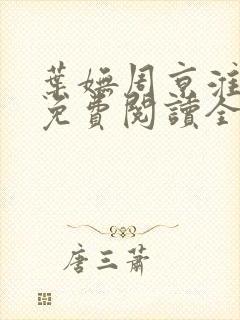 葉嫵周京淮
免費閱讀全
唐三蕭